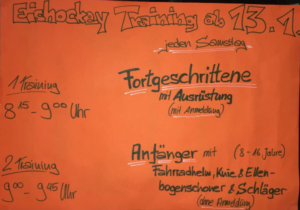 Eishockey Training ab 13.1.
jeden Samstag
1 Training
8 15 - 9 00 Uhr
Fortgeschrittene
mit Ausrüstung
(mit Anmeldung)
2 Training
9 00 - 9 45 Uhr
Anfänger mit (8-16 Jahre)
Fahrradhelm, Knie & Ellen-
bogenschoner & Schläger
(ohne Anmeldung)